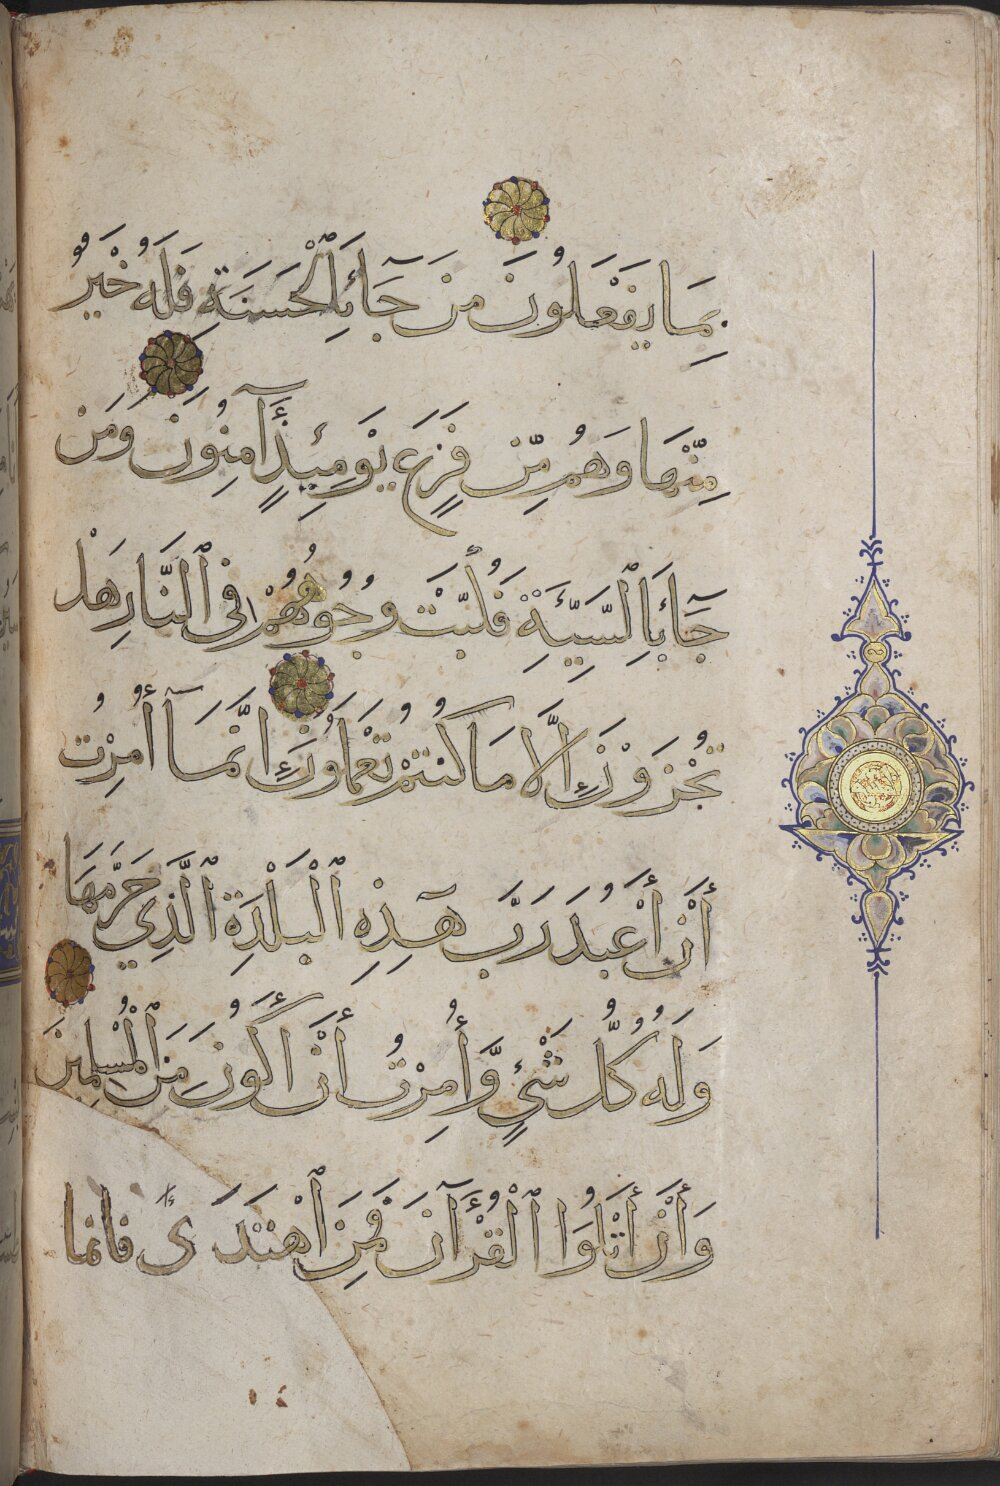 بِمَا يَفْعَلُونَ مَن جَآءَ بِٱلْحَسَنَةِ فَلَهُ خَيْرٌ
مِّنْهَا وَهُم مِّن فَزَعٍ يَوْمَئِذٍ آمِنُونَ وَمَن
جَآءَ بِٱلسَّيِّئَةِ فَكُبَّتْ وُجُوهُهُمْ فِي ٱلنَّارِ هَلْ
تُجْزَوْنَ إِلَّا مَا كُنتُمْ تَعْمَلُونَ إِنَّمَآ أُمِرْتُ
أَنْ أَعْبُدَ رَبَّ هَٰذِهِ ٱلْبَلْدَةِ ٱلَّذِي حَرَّمَهَا
وَلَهُ كُلُّ شَيْءٍ وَّأُمِرْتُ أَنْ أَكُونَ مِنَ ٱلْمُسْلِمِينَ
وَأَنْ أَتْلُوَا ٱلْقُرْآنَ فَمَنِ ٱهْتَدَىٰ فَإِنَّمَا